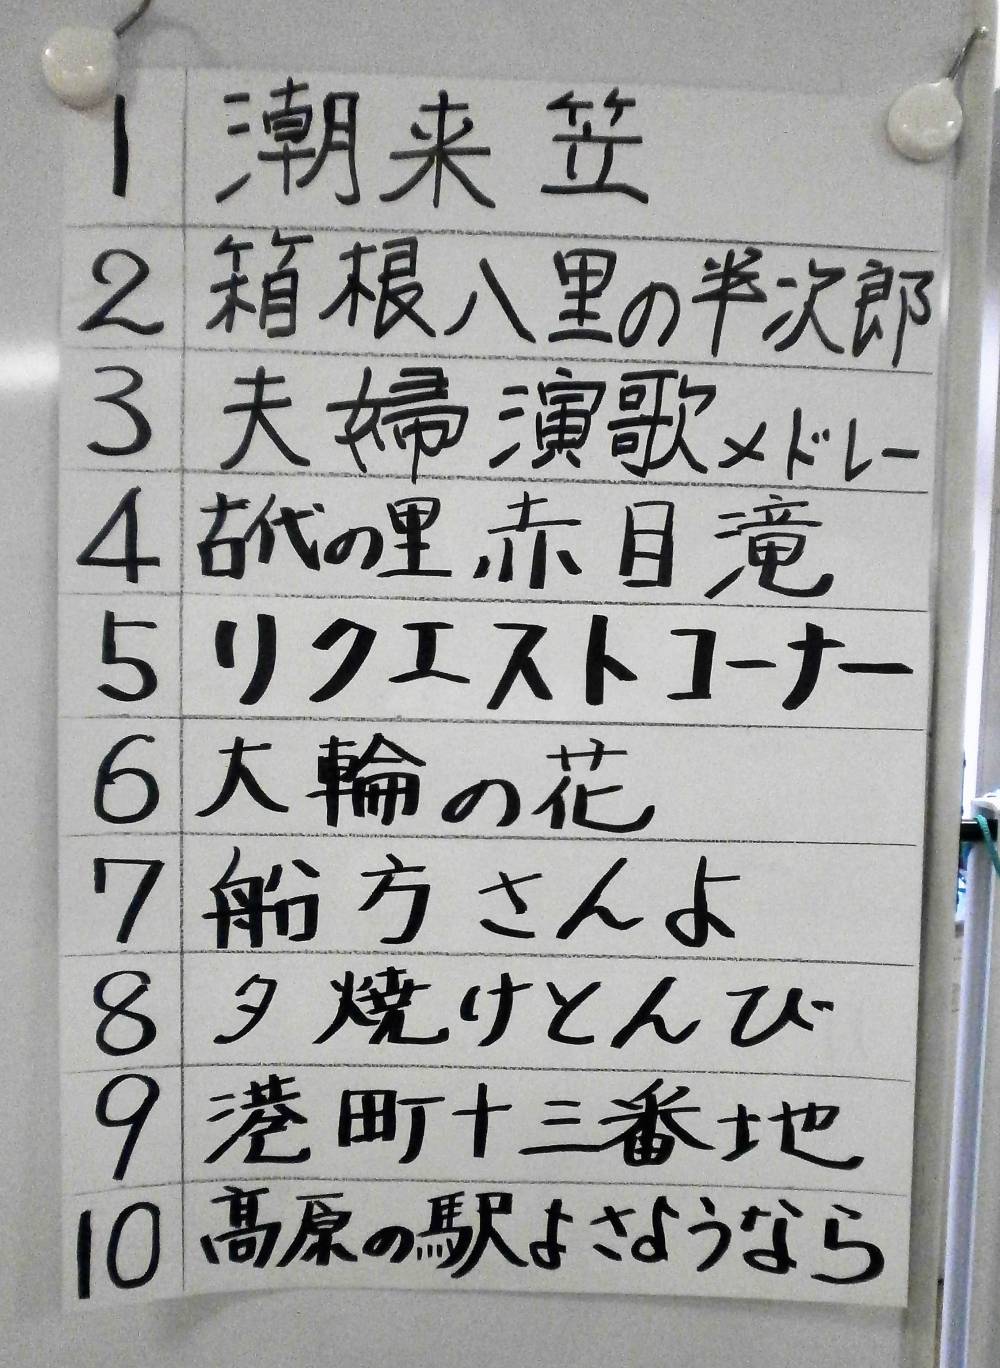 1 潮来笠
2 箱根八里の半次郎
3 夫婦演歌メドレー
4 古代の里 赤目滝
5 リクエストコーナー
6 大輪の花
7 船方さんよ
8 夕焼けとんび
9 港町十三番地
10 高原の駅よさようなら